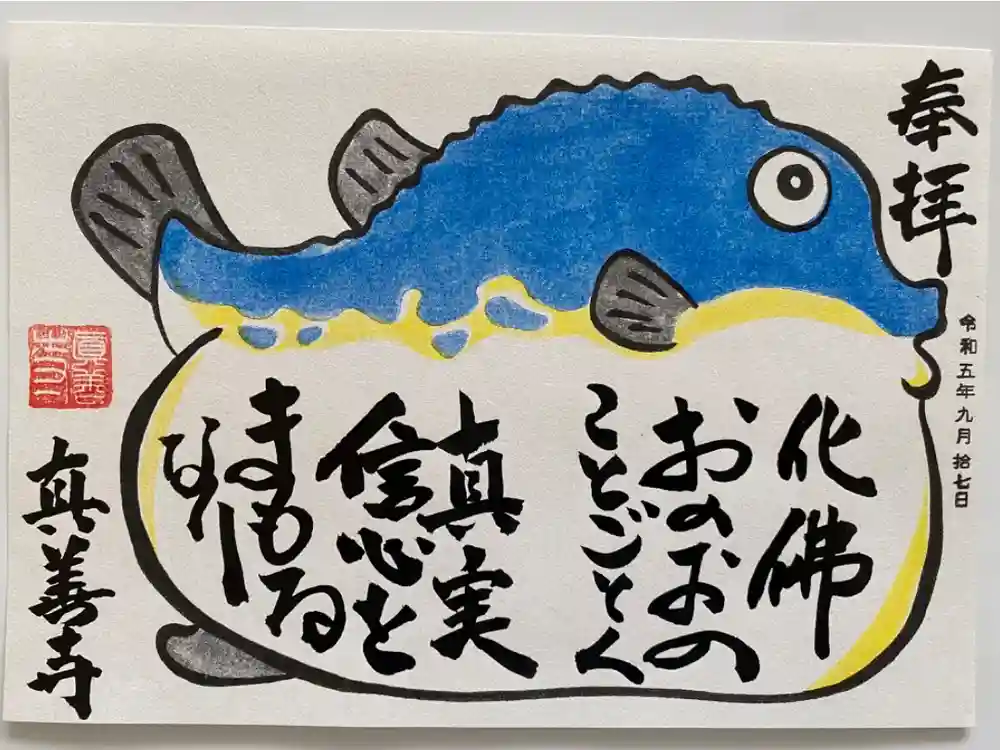 奉拝
令和五年九月拾七日
化佛
おのおの
ことごとく
真実
信心を
まもる
なり
真善寺